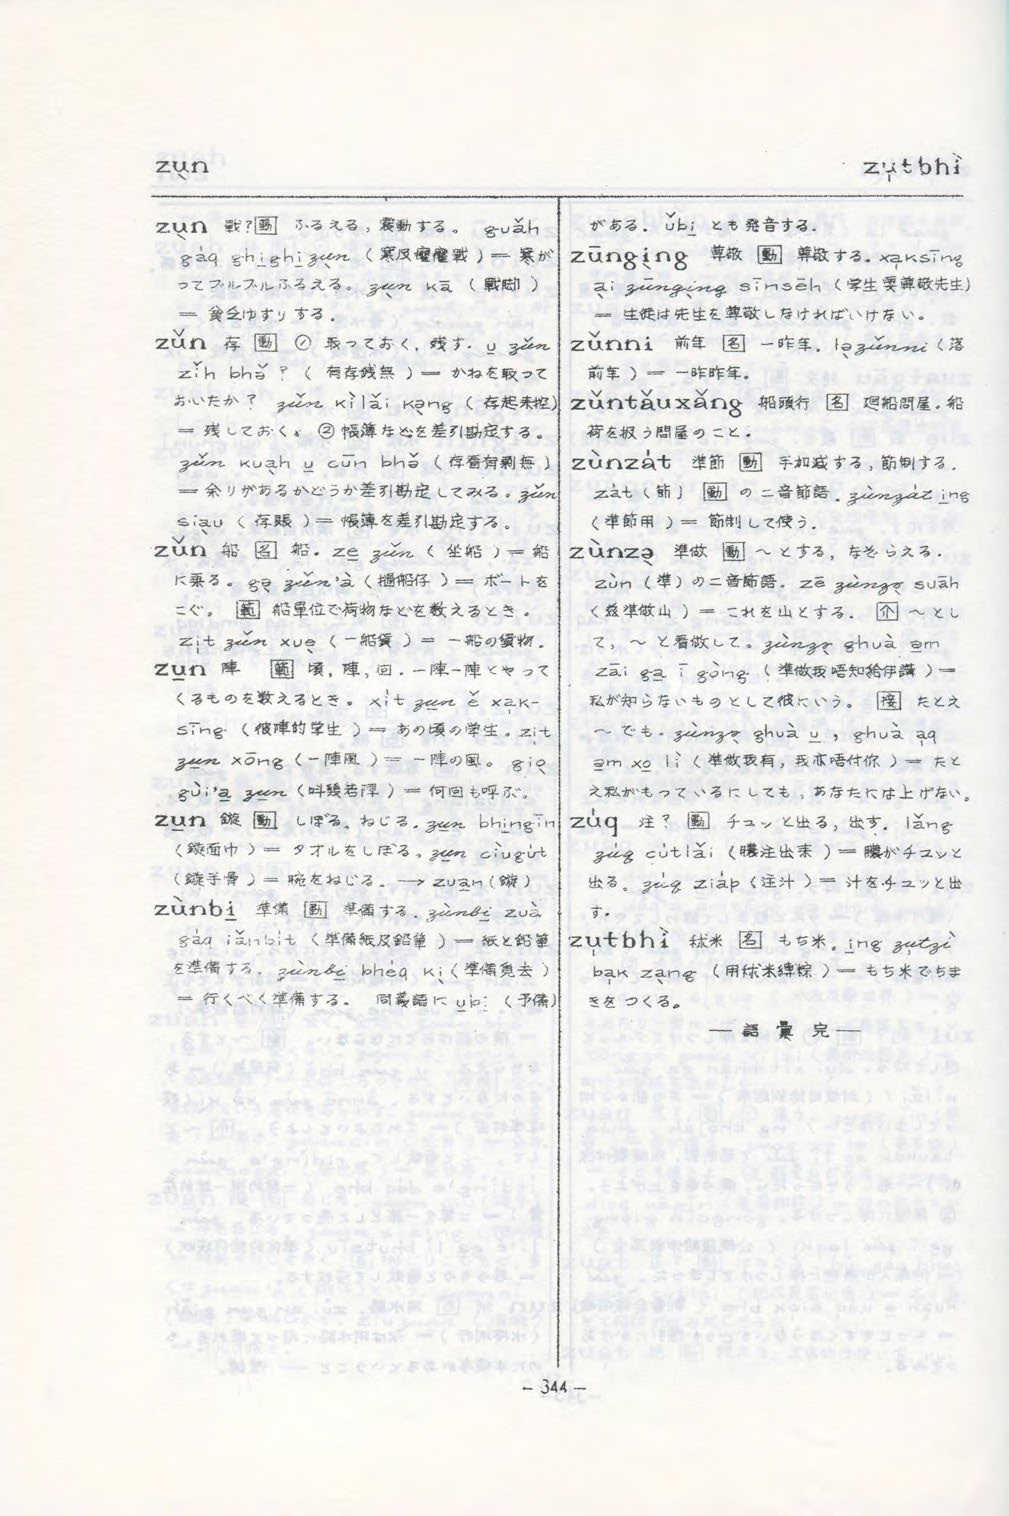 zu̖n
zu̍tbhì
zu̖n 戰? 動 ふるえる,震動する。 guǎh
gàq ghi̱ghi̱zu̖n (寒反 戰)= 寒が
ってブルブルふるえる。 zu̖n kā (戰 )
= 貧乏ゆすりする.
zǔn 存 動 ① 取っておく, 残す. u̱ zǔn
zǐh bhə̌ ? ( 有存銭無 )= かねを取って
おいたか? zǔn kìlǎi kə̖ng ( 存起来控)
= 残しておく。 ② 帳簿などを差引勘定する。
zǔn kua̖h u̱ cūn bhə̌ (存看有剰無)
= 余りがあるかどうか差引勘定してみる。zǔn
siàu ( 存賬 )= 帳簿を差引勘定する。
zǔn 船 名 船. ze̱ zǔn ( 坐船 )= 船
に乗る。 gə̖ zǔn'à ( 船仔 )= ボートを
こぐ。 範 船單位で荷物などを数えるとき.
zi̍t zǔn xue̖ (一船貨)= 一船の貨物.
zu̱n 陣 範 頃,陣,回. 一陣一陣とやって
くるものを数えるとき. xi̍t zu̱n ě xa̍k-
sīng (彼陣的学生 )= あの頃の学生。zi̍t
zu̱n xōng (一陣風 )= 一陣の風。 giə̖
gùi'a̱ zu̱n (叫幾若陣)= 何回も呼ぶ。
zu̱n 鏇 動 しぼる。ねじる. zu̱n bhi̱ngīn
(鏇面巾 )= タオルをしぼる, zu̱n ciùgu̍t
(鏇手骨)= 腕をねじる. ⟶ zua̱n(鏇)
zùnbi̱ 準備 動 準備する. zùnbi̱ zuà
gàq iǎnbi̍t (準備紙及鉛筆 )= 紙と鉛筆
を準備する. zùnbi̱ bhèq ki̖ (準備 去)
= 行くべく準備する. 同義語に u̱bi̱ (予備)
がある. ǔbi̱ とも発音する.
zūngi̖ng 尊敬 動 尊敬する. xa̍ksīng
a̖i zūngi̖ng sīnsēh (学生要尊敬先生)
= 生徒は先生を尊敬しなければいけない。
zǔnni 前年 名 一昨年. lə̖zǔnni (落
前年 )= 一昨昨年。
zǔntǎuxǎng 船頭行 名 廻船問屋. 船
荷を扱う問屋のこと.
zùnzàt 準節 動 手加減する,節制する.
zàt (節) 動 の二音節語. zùnzàt i̱ng
(準節用 )= 節制して使う.
zùnzə̖ 準做 動 ~とする, なぞらえる.
zùn (準)の二音節語. zē zùnzə̖ suāh
(玆準做山 )= これを山とする. 介 ~とし
て, ~と看做して. zùnzə̖ ghuà əm
zāi ga̱ ī gòng (準做我唔知給伊講)=
私が知らないものとして彼にいう. 接 たとえ
~でも. zùnzə̖ ghuà u̱ , ghuà a̍q
əm xo̱ lì (準做我有,我亦唔付你 )= たと
え私がもっているにしても,あなたには上げない。
zùq 注? 動 チュッと出る, 出す. lǎng
zùq cùtlǎi (膿注出来 )= 膿がチュッと
出る。 zùq ziàp (注汁)= 汁をチュッと出
す.
zu̍tbhì 秫米 名 もち米。i̱ng zu̍tzì
ba̍k za̖ng (用秫米縛粽 )= もち米でちま
きをつくる。
― 語 彙 完 ―
- 344 -